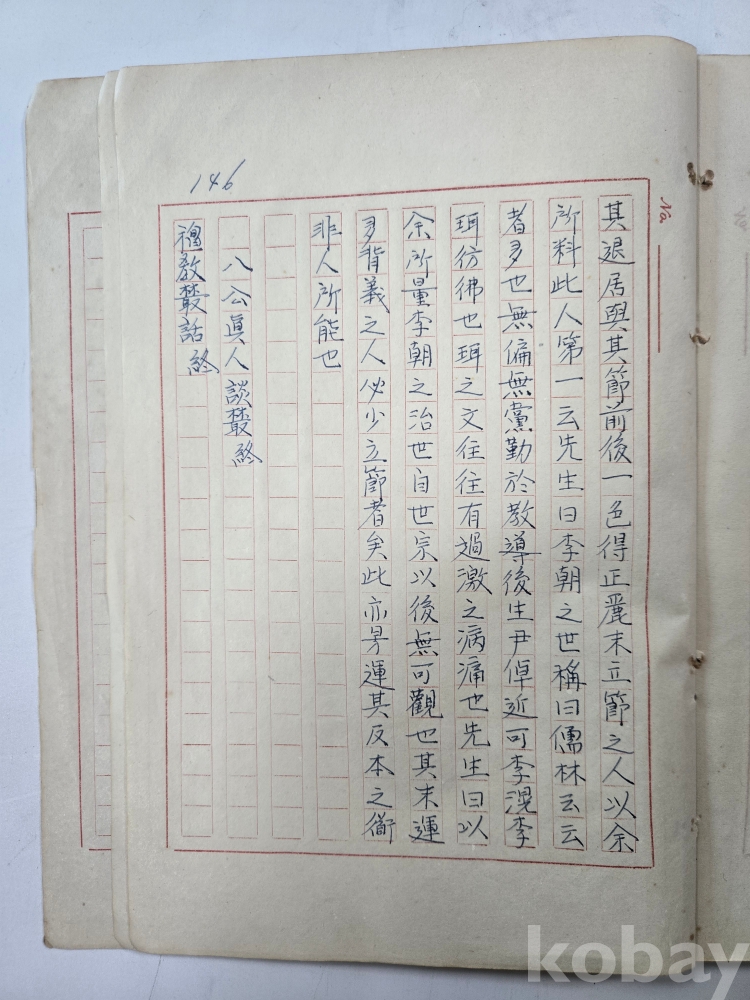 146
No
其退居與其節前後一色得正麗末立節之人以余
所料此人第一云先生曰李朝之世稱曰儒林云云
者多也無偏無黨勤於教導後生尹倬近可李滉李
珥彷彿也珥之文往往有過激之病痛也先生曰以
余所量李朝之治世自世宗以後無可觀也其末運
多背義之人必少立節者矣此亦旱運其反本之衝
非人所能也
八公眞人談叢終
神教叢話終
kobay